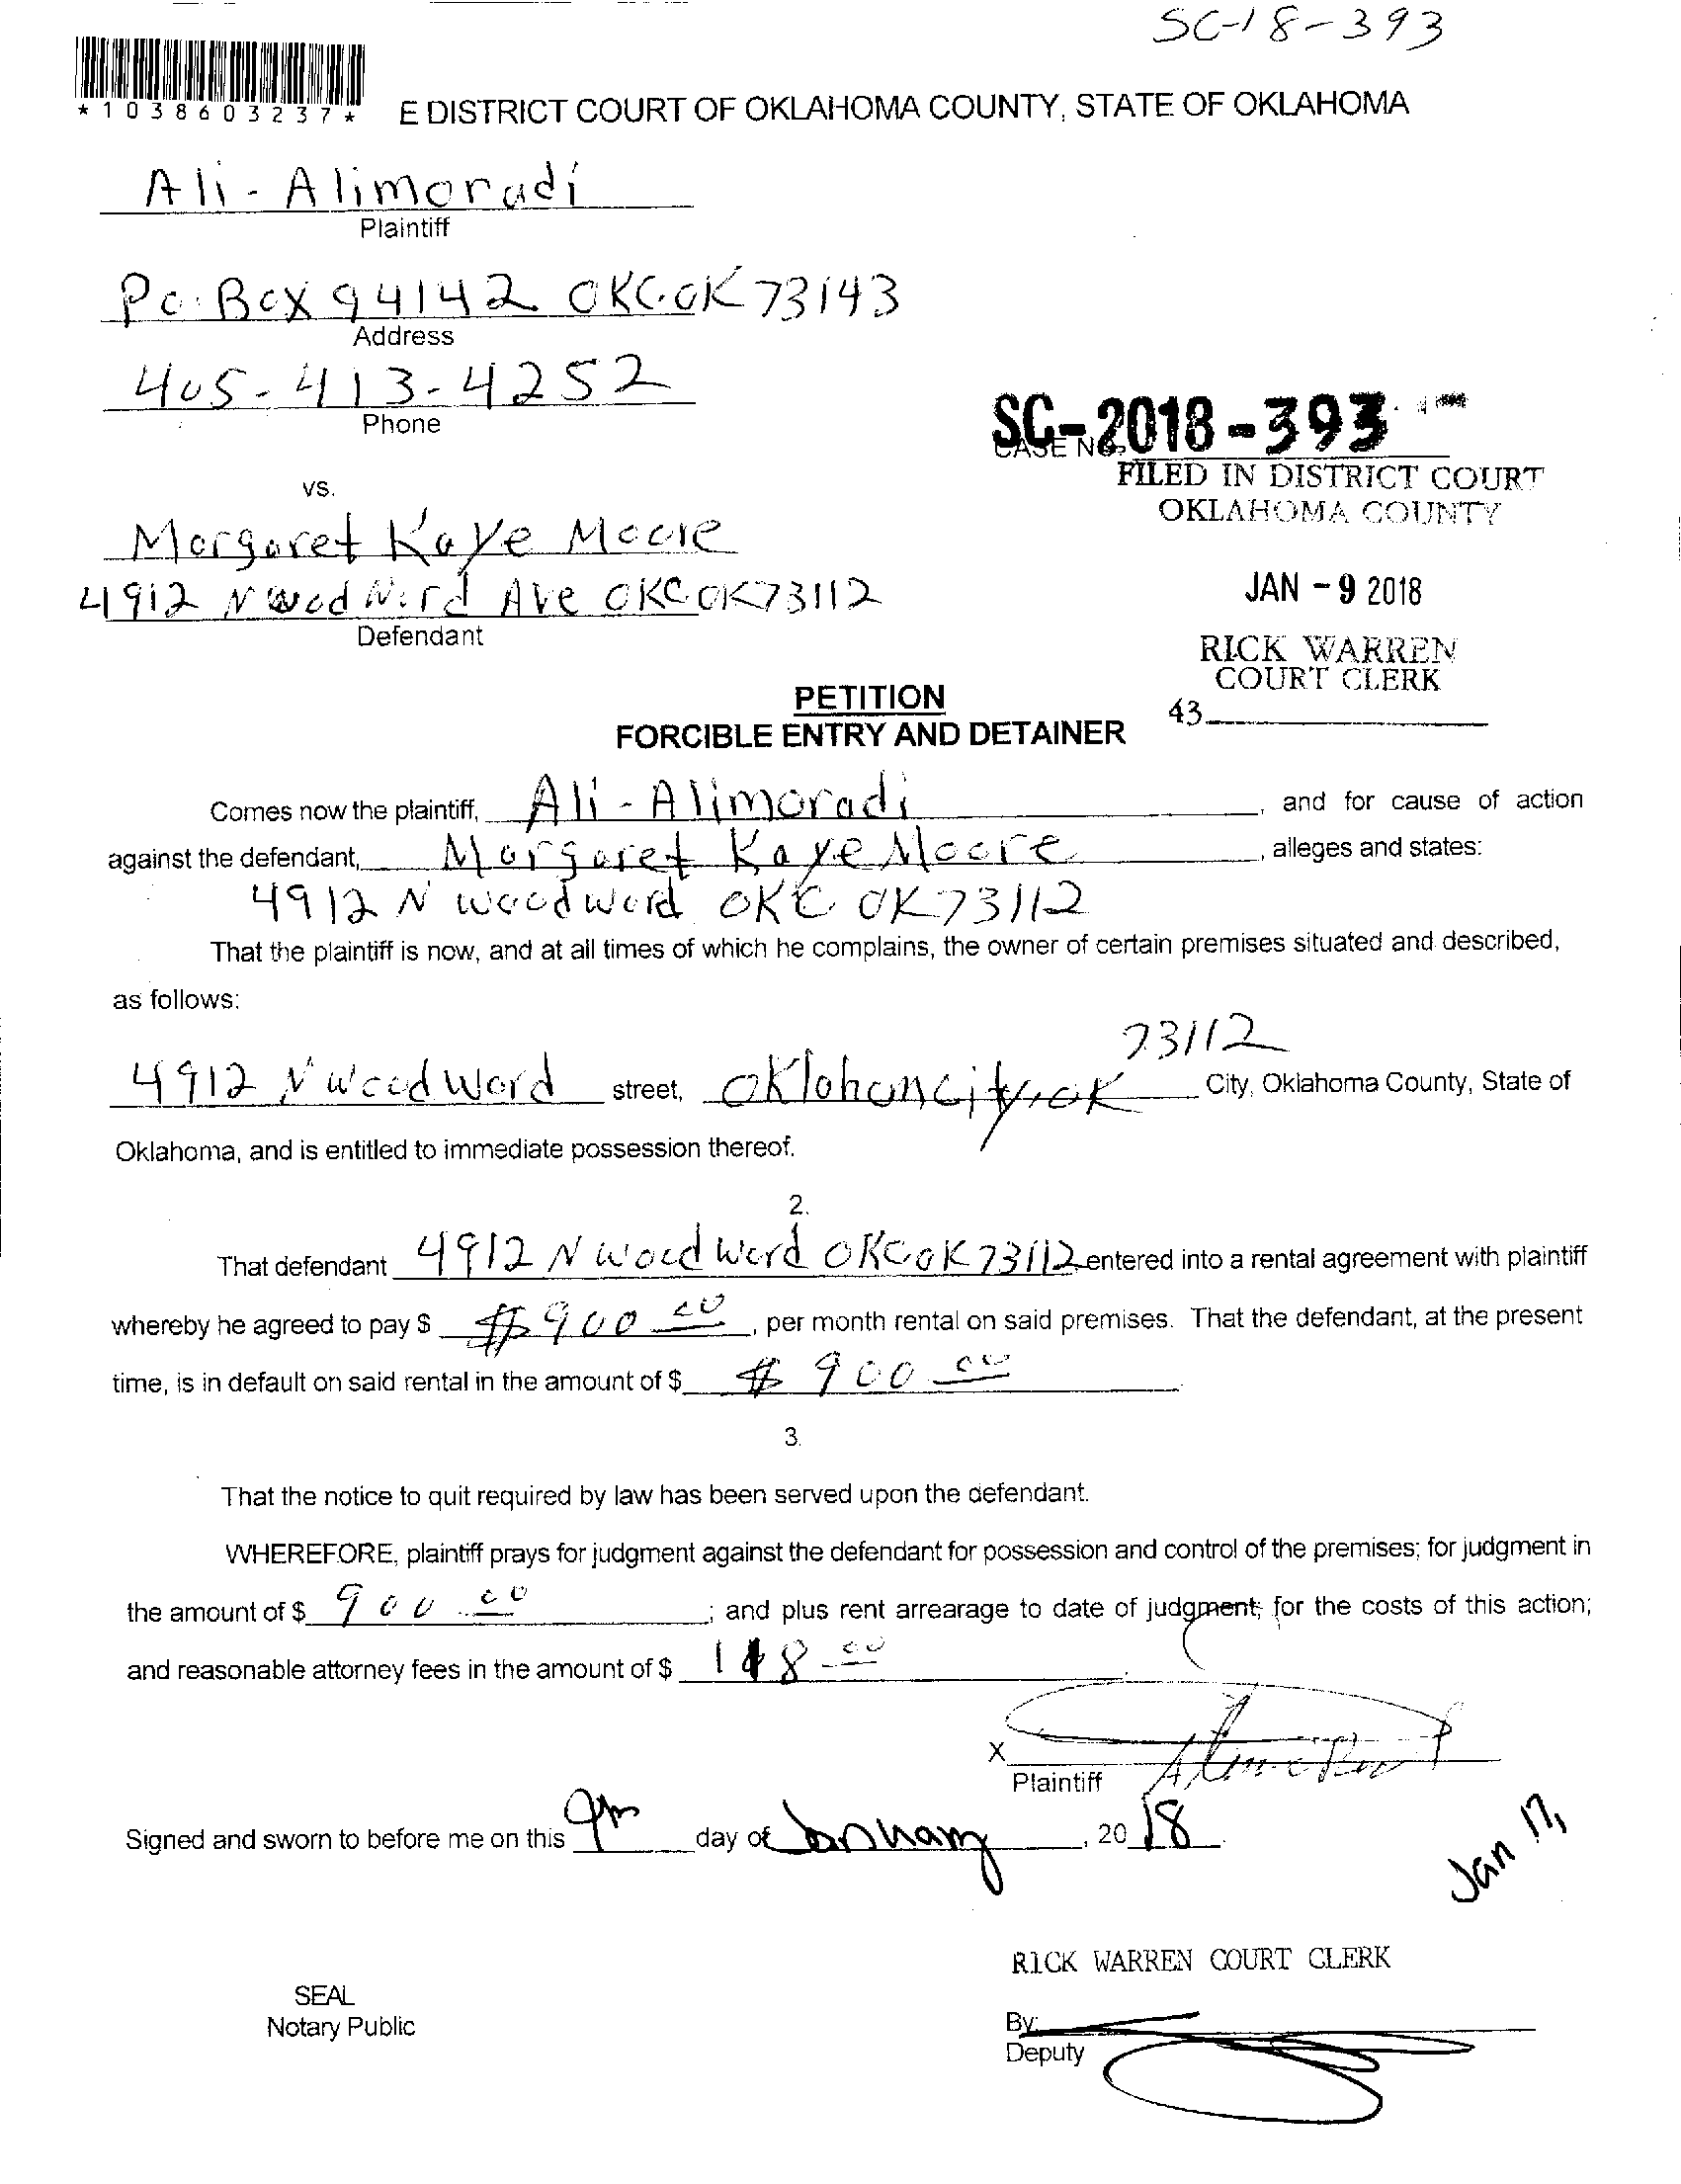 SC-18-393
*1038603237*
E DISTRICT COURT OF OKLAHOMA COUNTY, STATE OF OKLAHOMA
Ali - Alimoradi
Plaintiff
Po. Box 94142 OKC.OK 73143
Address
405-413-4252
Phone
SC-2018-393
CASE NO.
FILED IN DISTRICT COURT
OKLAHOMA COUNTY
JAN - 9 2018
RICK WARREN
COURT CLERK
43
vs.
Margaret Kaye Moore
4912 N Wood Ward Ave OKC OK 73112
Defendant
PETITION
FORCIBLE ENTRY AND DETAINER
Comes now the plaintiff, Ali - Alimoradi, and for cause of action
against the defendant, Margaret Kaye Moore, alleges and states:
4912 N wood word OKC OK 73112
That the plaintiff is now, and at all times of which he complains, the owner of certain premises situated and described,
as follows:
73112
4912 N wood Word street, Oklohoncity, OK City, Oklahoma County, State of
Oklahoma, and is entitled to immediate possession thereof.
2.
That defendant 4912 N wood word OKC OK 73112 entered into a rental agreement with plaintiff
whereby he agreed to pay $ $ 900 00, per month rental on said premises. That the defendant, at the present
time, is in default on said rental in the amount of $ $ 900 00.
3.
That the notice to quit required by law has been served upon the defendant.
WHEREFORE, plaintiff prays for judgment against the defendant for possession and control of the premises; for judgment in
the amount of $ 900.00; and plus rent arrearage to date of judgment; for the costs of this action;
and reasonable attorney fees in the amount of $ 00.
X
Plaintiff
Signed and sworn to before me on this 9th day of January, 20 18
Jan 17,
RICK WARREN COURT CLERK
SEAL
Notary Public
By:
Deputy